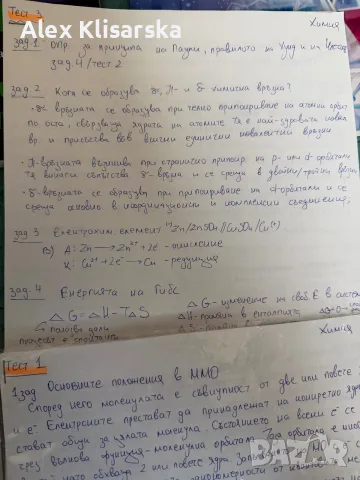 Alex Klisarska
Тест 3
Химия
зад.1 Опр. за принципа на Паули, правилото на Хунд и на
зад.4/тест 2
зад.2 Кога се образува π- и химична връзка?
връзката се образува при челно припокриване на атомни орбит.
по оста, свързваща ядрата на атомите. Тя е най-здравата ковал.
вр. и присъства във всички единични ковалентни връзки
π-връзката възниква при странично припокр. на p- или d-орбитали
и се среща в двойни/тройни връзки
връзката се образува при припокриване на d орбитали и се
среща основно в координационни и комплексни съединения;
зад 3 Електрохим. елемент Zn/ZnSO4//CuSO4/Cu(+)
В) A: Zn → Zn2+ + 2e - окисление
K: Cu2+ + 2e → Cu - редукция
зад.4 Енергията на Гибс
△G = △H - T△S
△G - изменение на своб. E в систем
△H - промяна в енталпията
процесът е спонтанен
△S
Химия
Тест 1
1 зад Основните положения в ММО
Според него молекулата е съвкупност от две или повече
и е. Електроните престават да принадлежат на конкретно яд
стават общи за цялата молекула. Състоянието на всеки е се
чрез вълнова функция - молекулна орбитала. Тази орбитала е
обхваща 2 или повече ядра.